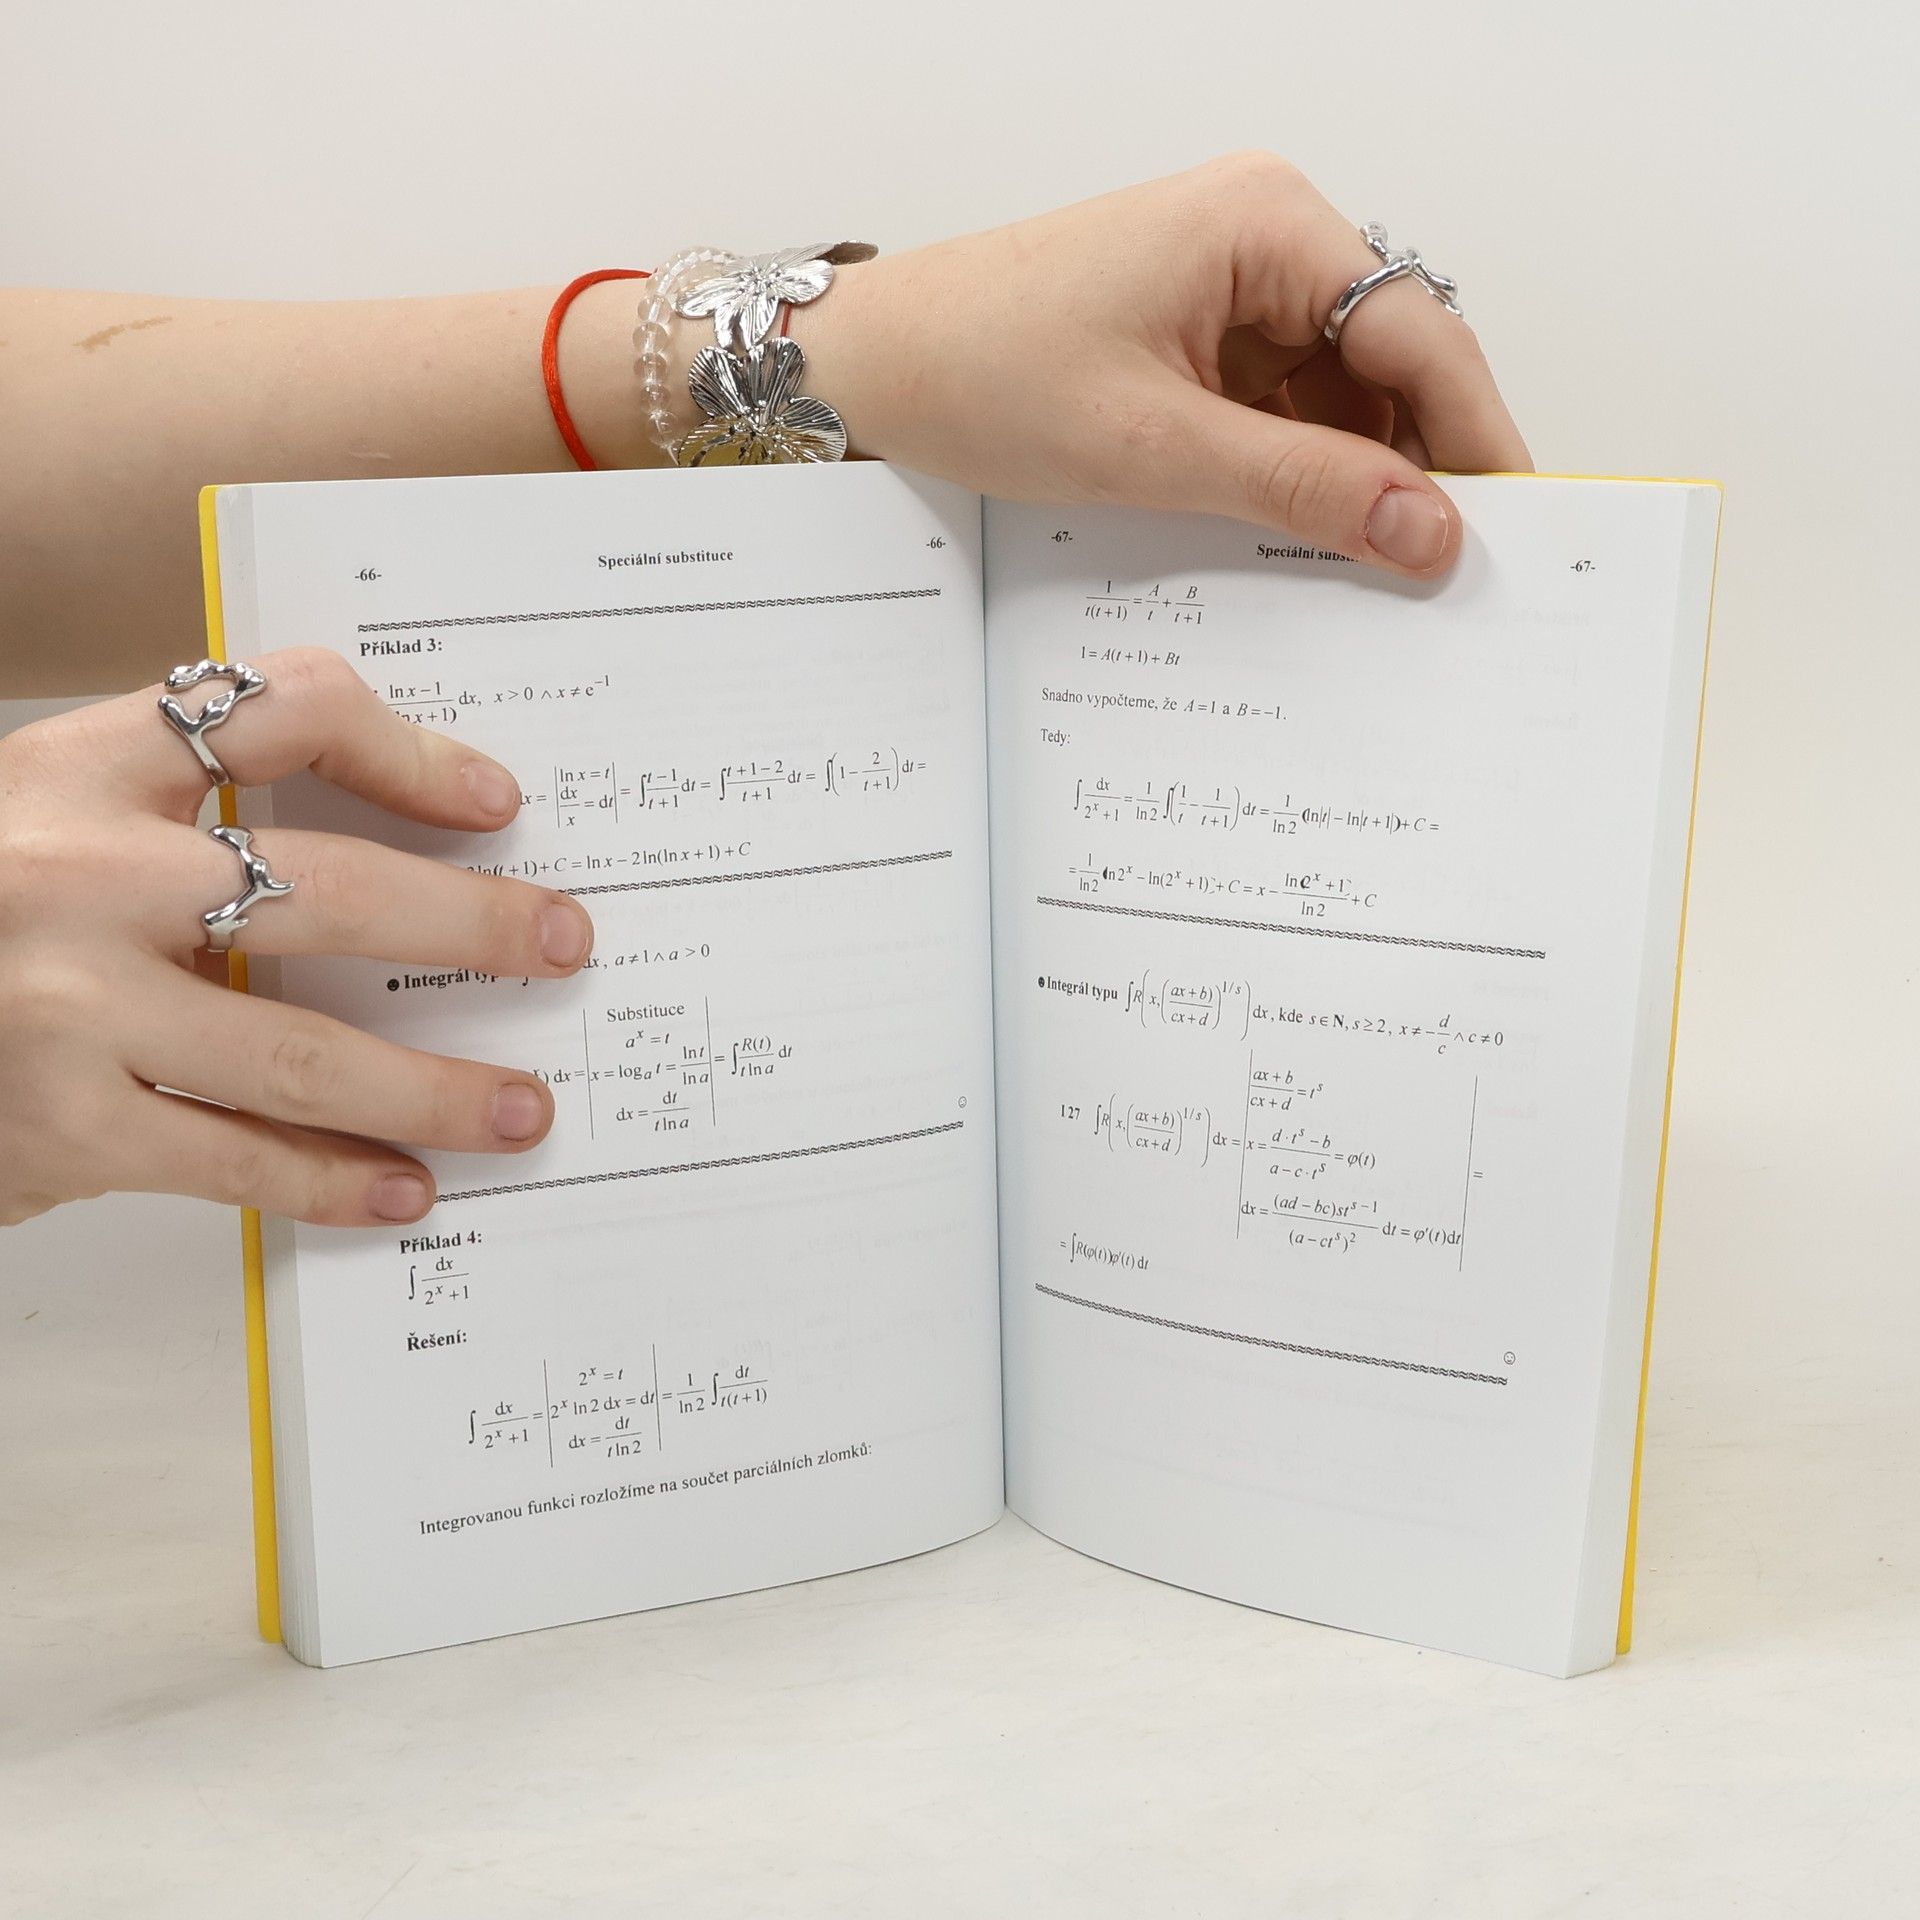 -66- Speciální substituce -66-
Příklad 3:
ln x − 1
dx, x > 0 ∧ x ≠ e⁻¹
ln x + 1)
x = | ln x = t | = ∫ (t−1)/(t+1) dt = ∫ (t+1−2)/(t+1) dt = ∫(1 − 2/(t+1)) dt =
| dx/x = dt |
2ln(t + 1) + C = ln x − 2ln(ln x + 1) + C
☻Integrál dx, a ≠ 1 ∧ a > 0
Substituce
aˣ = t
ˣ) dx = | x = logₐ t = ln t/ln a | = ∫ R(t)/(t ln a) dt
dx = dt/(t ln a)
☺
Příklad 4:
∫ dx/(2ˣ + 1)
Řešení:
2ˣ = t
∫ dx/(2ˣ + 1) = | 2ˣ ln 2 dx = dt | = 1/ln 2 ∫ dt/(t(t + 1))
dx = dt/(t ln 2)
Integrovanou funkci rozložíme na součet parciálních zlomků:
-67- Speciální -67-
1/(t(t + 1)) = A/t + B/(t + 1)
1 = A(t + 1) + Bt
Snadno vypočteme, že A = 1 a B = −1.
Tedy:
∫ dx/(2ˣ + 1) = 1/ln 2 ∫(1/t − 1/(t + 1)) dt = 1/ln 2 (ln|t| − ln|t + 1|) + C =
= 1/ln 2 (ln 2ˣ − ln(2ˣ + 1)) + C = x − ln(2ˣ + 1)/ln 2 + C
☻Integrál typu ∫R(x, ((ax + b)/(cx + d))^(1/s)) dx, kde s ∈ N, s ≥ 2, x ≠ −d/c ∧ c ≠ 0
(ax + b)/(cx + d) = tˢ
127 ∫R(x, ((ax + b)/(cx + d))^(1/s)) dx = | x = (d · tˢ − b)/(a − c · tˢ) = φ(t) | =
dx = (ad − bc)stˢ⁻¹/(a − ctˢ)² dt = φ′(t)dt
= ∫R(φ(t))φ′(t) dt
☺